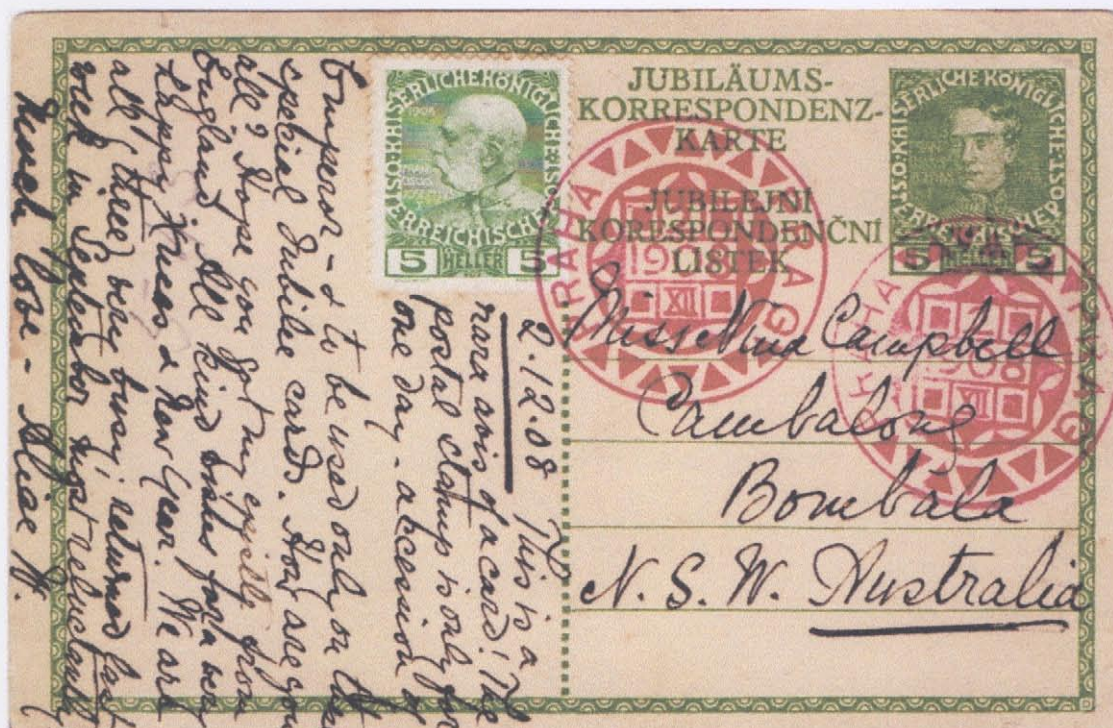 JUBILÄUMS-
KORRESPONDENZ-
KARTE
JUBILEJNÍ
KORESPONDENČNÍ
LÍSTEK
KAISERLICHE KÖNIGLICHE
ÖSTERREICHISCHE
5 HELLER 5
KAISERLICHE KÖNIGLICHE
ÖSTERREICHISCHE
5 HELLER 5
PRAHA PRAG
1908
XII
PRAHA PRAG
1908
XII
Miss Nina Campbell
Cambalong
Bombala
N. S. W. Australia
2.12.08 This is a
rara avis of a card! The
postal stamp is only for
one day - accession of
Emperor - & to be used only on this
special Jubilee card. How are you
all? Hope you got my epistle from
England. All kind wishes for a very
Happy Xmas & New Year. We are
all three very busy; returned last
week in September most reluctantly
Much love - Alice